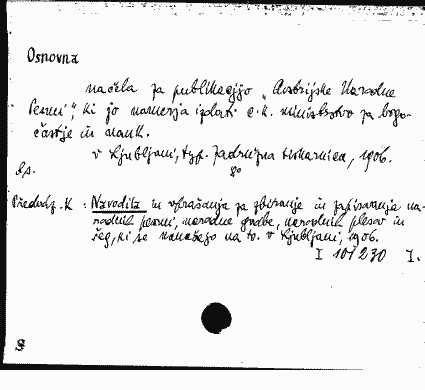 Osnovna
načela za publikacijo „Avstrijske Narodne
Pesmi“, ki jo namerja izdati c. k. ministrstvo za bogo-
častje in nauk.
v Ljubljani, typ. Zadružna tiskarnica, 1906.
8°
Predváz. K : Navodila in vprašanja za zbiranje in zapisovanje na-
rodnih pesmi, narodne godbe, narodnih plesov in
šeg, ki se nanašajo na to. v Ljubljani, 1906.
I 101230 I.